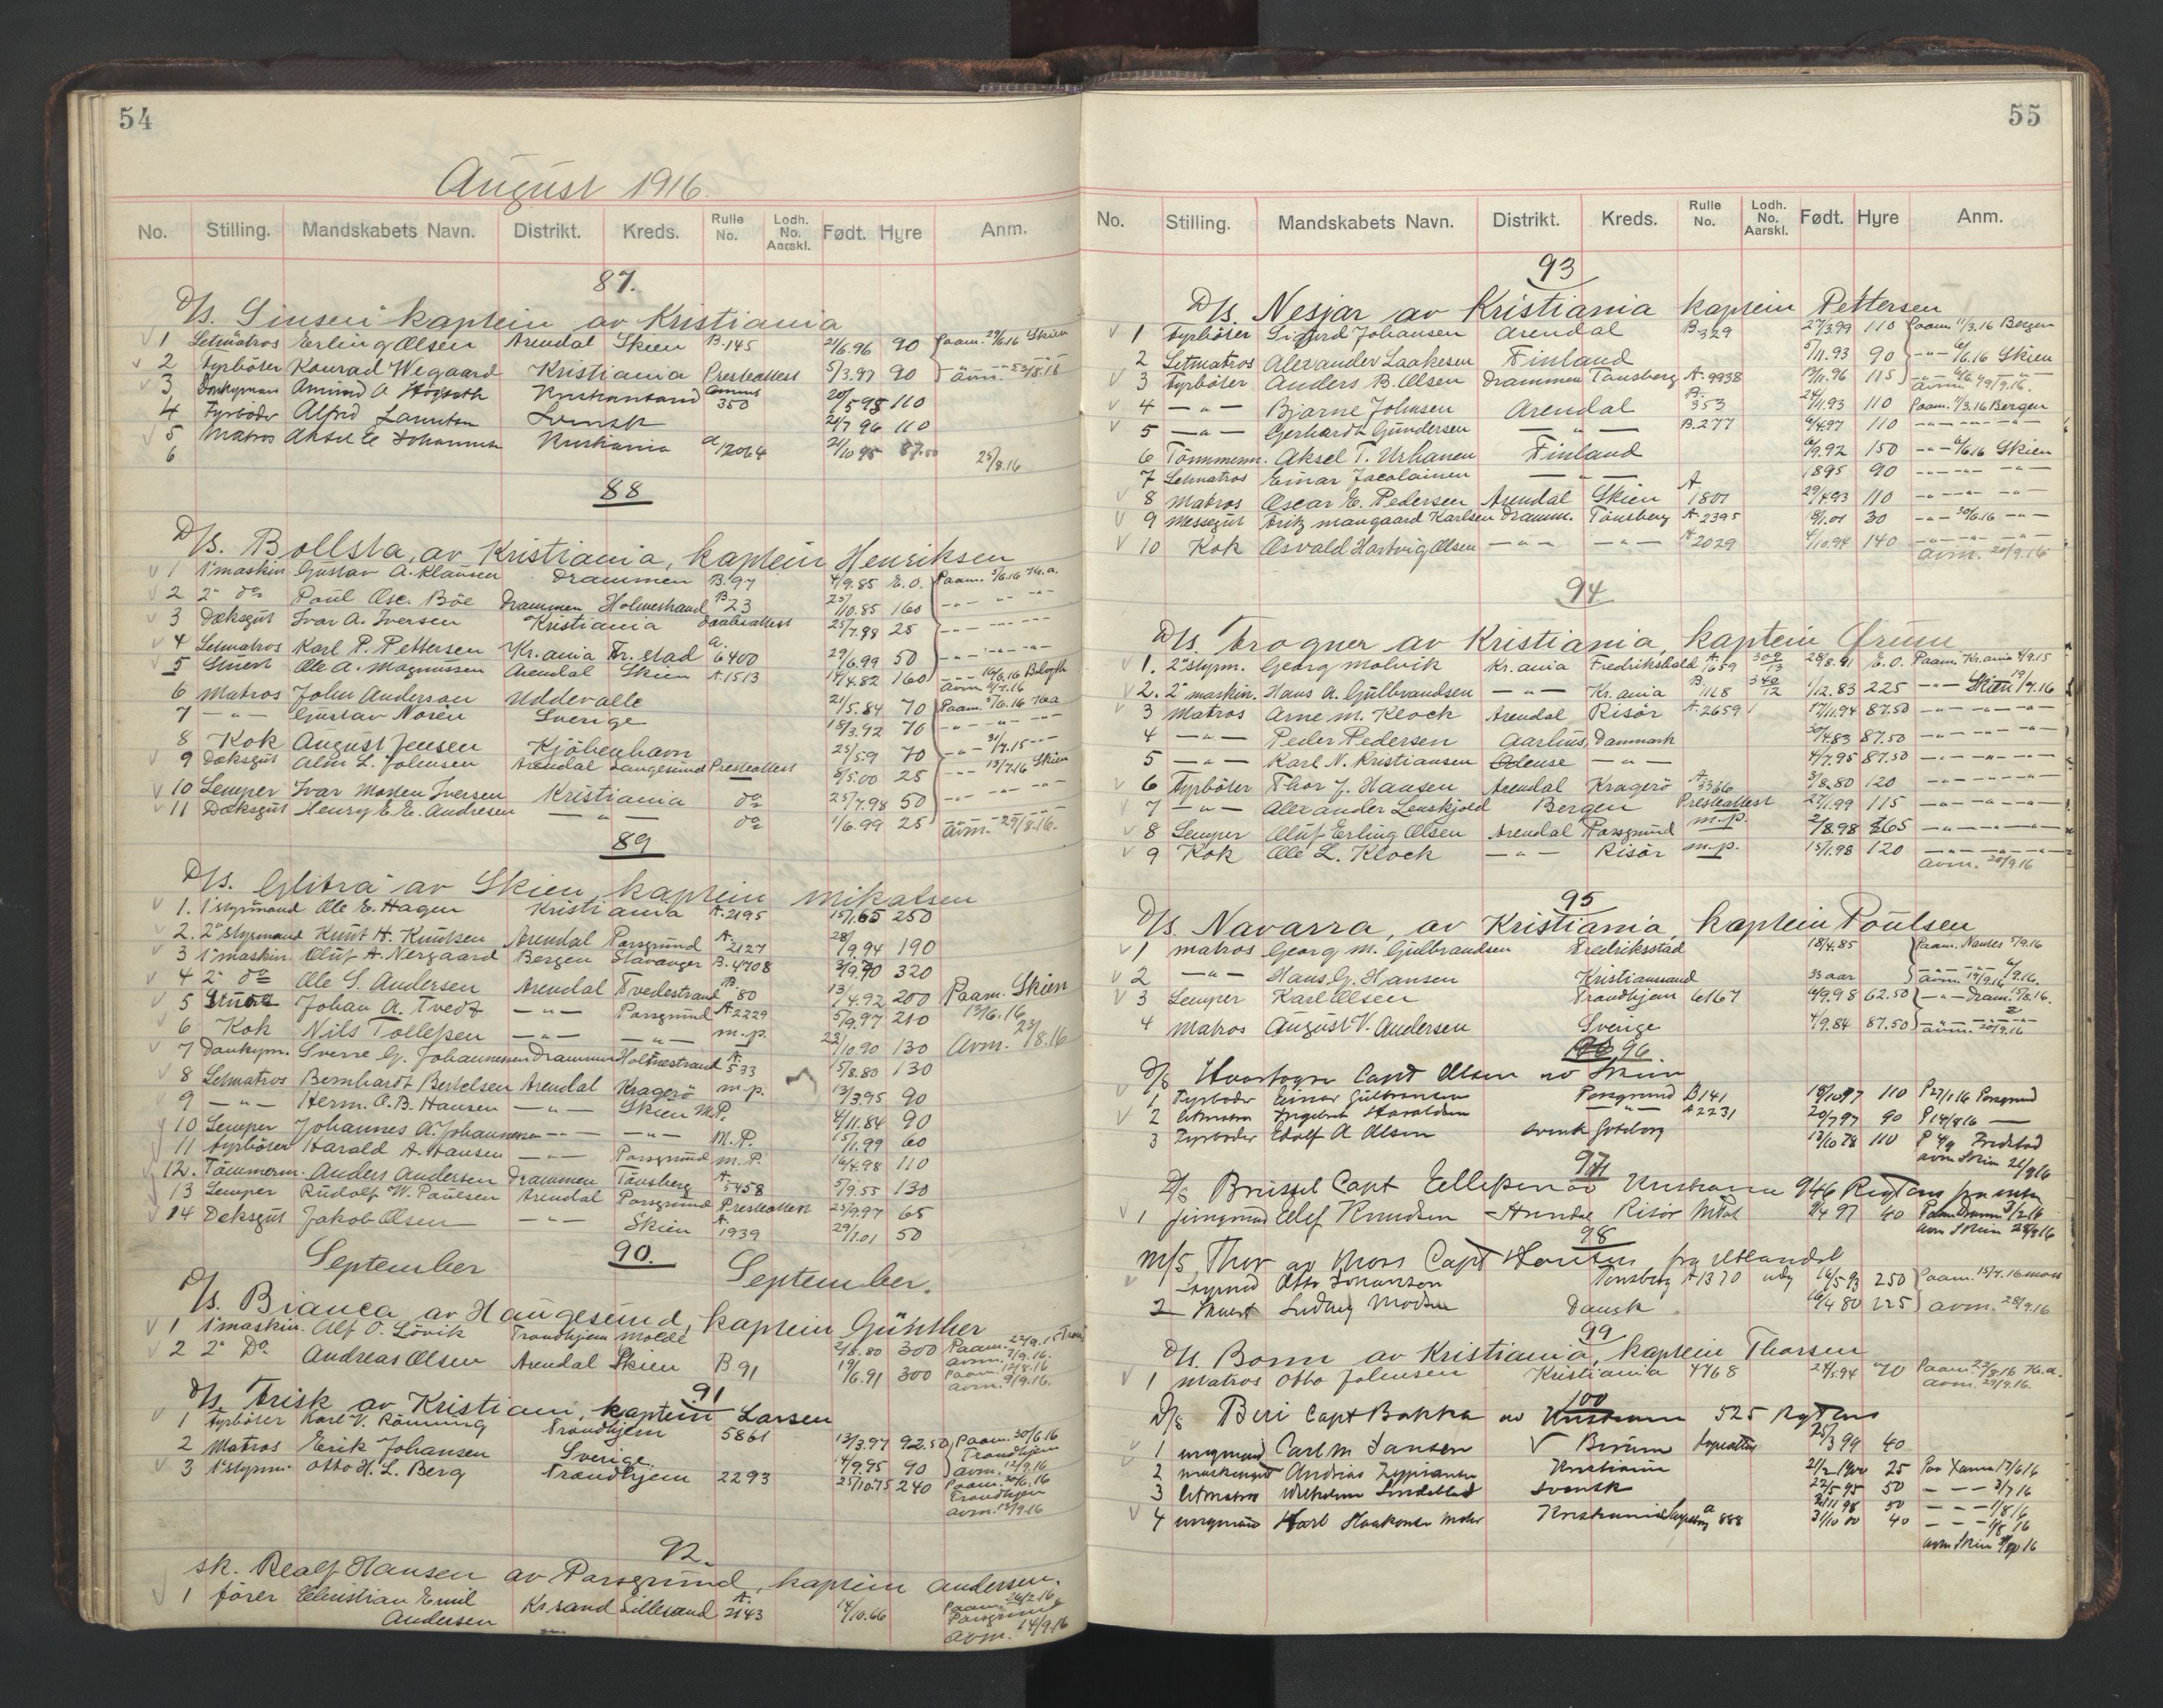 54
August 1916.
No. Stilling. Mandskabets Navn. Distrikt. Kreds. Rulle No. Lodh. No. Aarskl. Født. Hyre Anm.
87.
D/s. Sinsen kaptein av Kristiania
1 Letmatros Erling Olsen Arendal Skien B.145 21/6.96 90 Paam. 29/6.16 Skien
2 Fyrböter Konrad Wegaard Kristiania Presteattest 5/3.97 90
3 Donkeyman Amund A 350 110
4 Fyrböder Alfred Svensk 21/7 96 110
5 Matros Aksel E Johannesen Kristiania a 12064 21/10 95 87.50
6 25/8.16
88
D/s. Bollsta, av Kristiania, kaptein Henriksen
1 1' maskin Gustav A. Klausen Drammen B.97 4/9.85 E.O. Paam. 5/6.16 Kr.a.
2 2' do Paul Osc. Böe Drammen Holmestrand B.23 25/10.85 160 -"- -"- -"-
3 Dæksgut Ivar A. Iversen Kristiania Daabsattest 25/7.98 25 -"- -"- -"-
4 Letmatros Karl P. Pettersen Kr.ania Fr.stad a.6400 29/6.99 50 -"- -"- -"-
5 Stuert Ole A. Magnussen Arendal Skien A.1513 14/4.82 160
6 Matros John Anderson Uddevalle 21/5.84 70 Paam. 5/6.16 Kr.a
7 -"- Gustav Norén Sverige 18/3.92 70 -"- -"- -"-
8 Kok August Jensen Kjöbenhavn 25/5.9 70 -"- 31/7.15 -"-
9 Dæksgut Alm L. Johnsen Arendal Langesund Presteattest 8/5.00 25 -"- 13/7.16 Skien
10 Lemper Ivar Morten Iversen Kristiania do 25/7.98 50 -"- -"- -"-
11 Dæksgut Henry E.E. Andresen -"- do 1/6.99 25 avm. 29/8.16.
89
D/s. Glitra av Skien, kaptein Mikalsen
1. 1' styrmand Ole E. Hagen Kristiania A.2195 15/1.65 250
2. 2' styrmand Knut H. Knutsen Arendal Porsgrund A.2127 28/9.94 190
3 1' maskin. Oluf A. Nergaard Bergen Stavanger B.4708 3/9.70 320
4 2' do Ole S. Andersen Arendal Tvedestrand B.80 13/4.92 200 Paam. Skien
5 Stuert Johan A. Tvedt -"- Porsgrund A.2229 5/9.97 210 13/6.16
6 Kok Nils Tollefsen -"- -"- m.p. 22/10.90 130 Avm. 23/8.16
7 Donkym. Sverre G. Johannesen Drammen Holmestrand A.533 15/8.80 130
8 Letmatros Bernhardt Bertelsen Arendal Kragerö m.p. 13/3.95 90
9 -"- Herm. O.B. Hansen -"- Skien M.P. 4/11.84 90
10 Lemper Johannes A. Johannesen -"- -"- M.P. 15/1.99 60
11 Fyrböter Harald A. Hansen -"- Porsgrund m.P. 16/4.98 110
12. Tömmerm. Anders Andersen Drammen Tönsberg A.5458 5/9.55 130
13 Lemper Rudolf W. Paulsen Arendal Porsgrund Presteattest 25/9.97 65
14 Deksgut Jakob Olsen -"- Skien A.1939 29/1.01 50
September 90. September.
D/s. Bianca av Haugesund, kaptein Günther
1 1' maskin. Alf O. Lövik Trondhjem Molde 2/8.80 300 Paam. 22/9.15 Trom
avm. 7/9.16.
2 2' Do. Andreas Olsen Arendal Skien B.91 19/6.91 300 Paam. 12/8.16
avm. 9/9.16.
91
D/s. Frisk av Kristiani, kaptein Larsen
1 Fyrböter Karl V. Rönning Trondhjem 5861 13/3.97 92.50 Paam. 30/6.16
2 Matros Erik Johansen Sverige. 14/9.95 90 Trondhjem avm. 12/9.16
3 1' styrm. Otto H.L. Berg Trondhjem 2293 25/10.75 240 Paam. 30/6.16
Trondhjem
avm. 13/9.16
92.
sk. Realf Hansen av Porsgrund, kaptein Andersen.
1 förer Christian Emil Kr.sand Lillesand A.2143 14/10.66 Paam. 26/2.16
Andersen Porsgrund
avm. 14/9.16
55
No. Stilling. Mandskabets Navn. Distrikt. Kreds. Rulle No. Lodh. No. Aarskl. Født. Hyre Anm.
93
D/s. Nesjar av Kristiania kaptein Pettersen
1 Fyrböter Sigurd Johansen Arendal B.329 27/3.99 110 Paam. 11/3.16 Bergen
2 Letmatros Alexander Laakesen Finland 5/11.93 90 -"- 6/6.16 Skien
3 Fyrböter Anders B. Olsen Drammen Tönsberg A.9938 13/11.96 115
4 -"- Bjarne Johnsen Arendal B.353 24/11.93 110 Paam. 11/3.16 Bergen
5 -"- Gerhardt Gundersen -"- B.277 6/4.97 110 -"- -"- -"-
6 Tömmerm. Aksel T. Urhanen Finland 6/9.92 150 -"- 6/6.16 Skien
7 Letmatros Einar Jacolainen -"- 1895 90 -"- -"- -"-
8 Matros Oscar E. Pedersen Arendal Skien A.1801 29/4.93 110 -"- -"- -"-
9 Messegut Fritz Mangaard Karlsen Dramm. Tönsberg A.2395 18/1.01 30 -"- 30/6.16 -"-
10 Kok Osvald Hartvig Olsen -"- -"- A.2029 4/10.94 140 -"- -"- -"-
avm. 20/9.16
94
D/s. Frogner av Kristiania, kaptein Ørum
1. 2' styrm. Georg Molvik Kr.ania Fredrikshald A.1659 300/13 28/8.91 E.O. Paam. Kr.ania 4/9.15
2. 2' maskin. Hans A. Gulbrandsen -"- Kr.ania B.1128 340/12 1/12.83 225 -"- Skien 19/7.16
3 Matros Arne M. Klock Arendal Risör A.2659 17/11.94 87.50 -"- -"- -"-
4 -"- Peder Pedersen Aarhus, Danmark 30/4.83 87.50 -"- -"- -"-
5 -"- Karl N. Kristiansen Odense -"- 4/7.95 87.50 -"- -"- -"-
6 Fyrböter Thor J. Hansen Arendal Kragerö A.3366 3/8.80 120 -"- -"- -"-
7 -"- Alexander Lenskjold Bergen Presteattest 27/1.99 115 -"- -"- -"-
8 Lemper Oluf Erling Olsen Arendal Porsgrund m.p. 2/8.98 65 -"- -"- -"-
9 Kok Ole L. Klock -"- Risör m.p. 15/1.98 120 -"- -"- -"-
avm. 20/9.16
95
D/s. Navarra, av Kristiania, kaptein Poulsen
1 matros Georg M. Gulbrandsen Fredriksstad 18/4.85 Paam. Nantes 5/9.16
2 -"- Hans G. Hansen Kristiansand 33 aar
3 Lemper Karl Olsen Trondhjem 6167 6/9.98 62.50 -"- Dram. 15/8.16.
4 Matros August V. Andersen Sverige 4/9.84 87.50 avm. 20/9.16
96.
D/s Capt Olsen av Skien
1 Fyrböder Einar Gulbransen Porsgrund B141 18/10 97 110 P 27/1 16 Porsgrund
2 Letmatros Ingebret Haraldsen -"- A2231 20/7 97 90 P 14/8 16
3 Fyrböder Adolf A Olsen svensk Goteborg 13/10 78 110 P 4/9 Fredstad
avm Skien 21/9 16
97
D/s Brüssel Capt Ellefsen av Kristiania 946 Rgtons fra
1 jungmand Olef Knudsen Arendal Risör 9/4 97 40
avm Skien
98
M/s Thor av Moss Capt fra Utlandet
Styrmd Otto Johansen Tönsberg A1370 udg 16/5 93 250 Paam. 15/7.16 Moss
2 Stuert Ludvig Madsen Dansk 16/4 80 225 avm. 28/9.16
99
D/s. Bonn av Kristiania, kaptein Thorsen
1 Matros Otto Johnsen Kristiania 4768 24/5.94 70 Paam. 23/8.16 Kr.a.
avm. 29/9.16.
100
D/s Biri Capt Bakka av Kristiania 525 RgTons
1 ungmand Carl M Jansen Bærum 25/3 99 40
2 maskingut Andreas Kristiania 21/2 1900 25
3 Letmatros Wilhelm Lindeblad svensk 22/5 95 50 - - - 3/7 16
4 ungmand Karl Haakonsen Kristiania 888 31/10 00 40
avm Skien